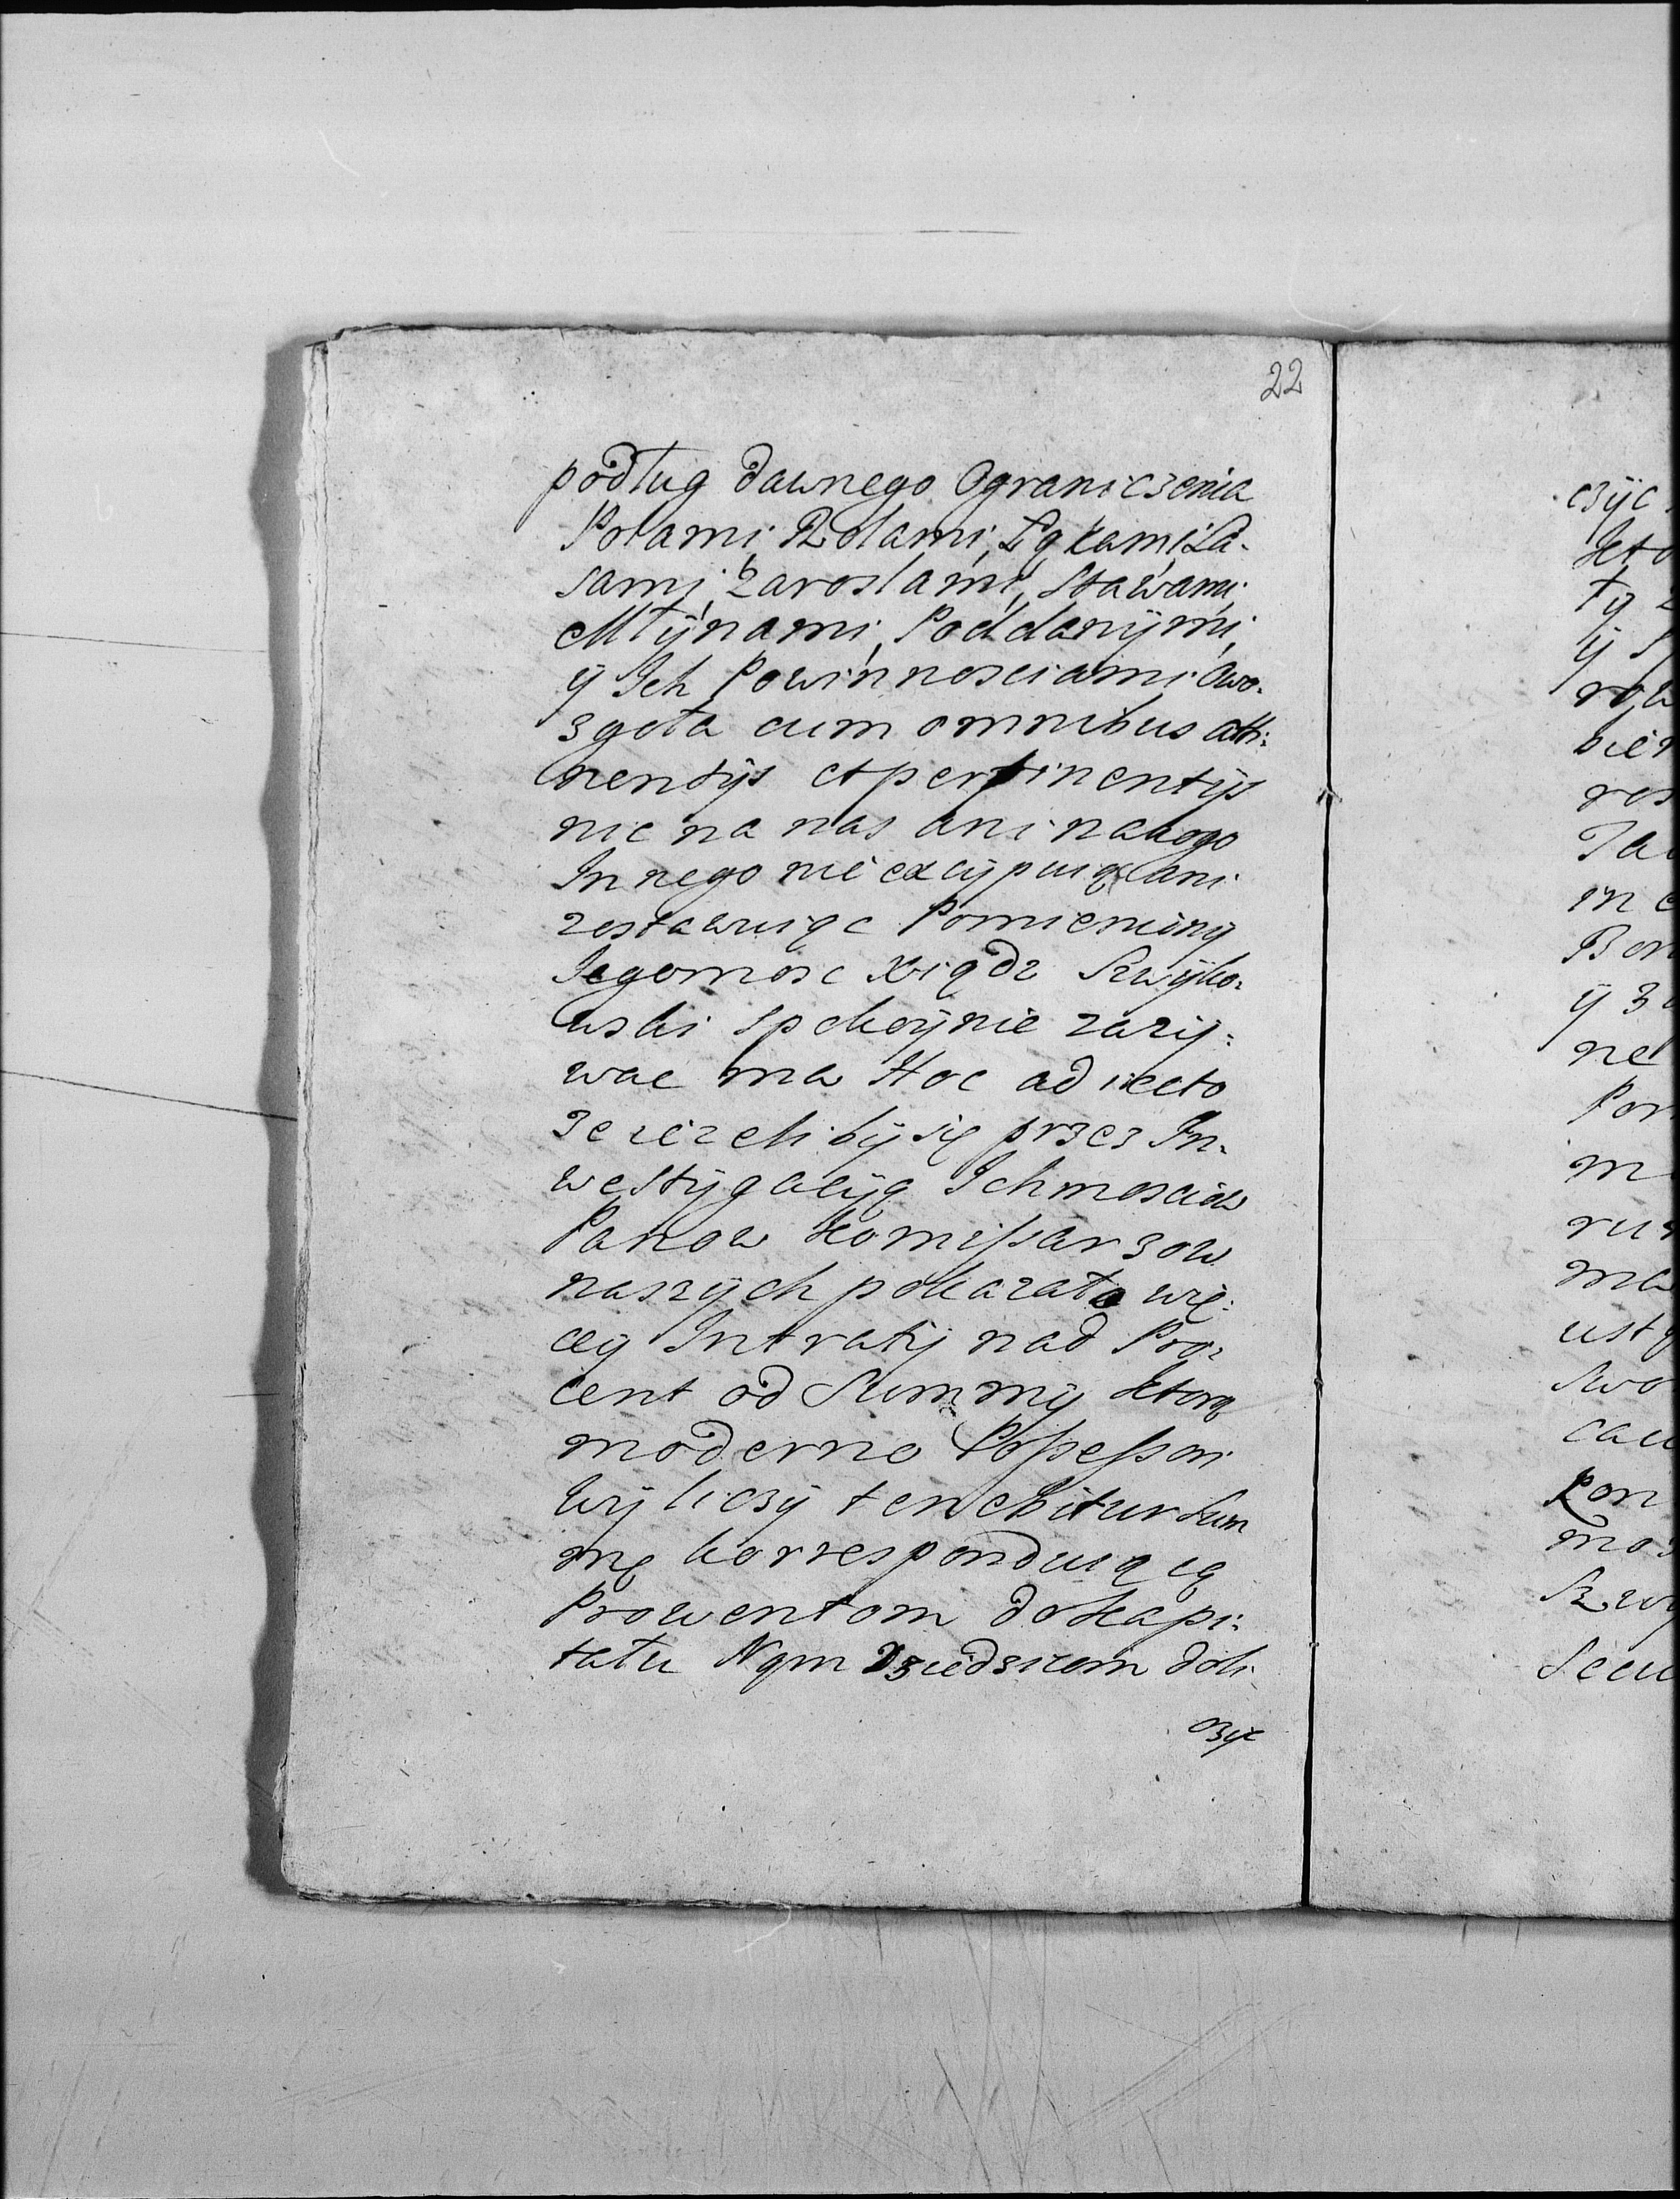 22
podług dawnego Ograniczenia
Polami, Rolami, Łąkami, La-
sami, Zaroslami, Stawami,
Młÿnami, Poddanÿmi,
ÿ Ich Powinnosciami Owo-
zgoła cum omnibus atti:
nentÿs et pertinentÿs
nic na nas ani nakogo
Innego nie excÿpuiąc ani
zostawuiąc Pomieniony
Jegomosc Xiądz Szwÿko-
wski Spokoÿnie zazÿ:
wac ma Hoc adiecto
ze iezeli bÿ się przez In-
westÿgacÿą Ichmosciow
Panow Komissarzow
naszÿch pokazało wię:
ceÿ Intratÿ nad Pro-
cent od Summÿ ktorą
moderno Possessori
wÿliczÿ tenebitur Sum
mę korresponduiącą
Prowentom do Kapi:
tału Nąm Dziedzicom doli
czÿc
czÿc
kto
łą
ÿ
bier
Ta
in
ÿ
ne
Por
m
ma
ustą
Swo
cau
Kon
Szwÿ